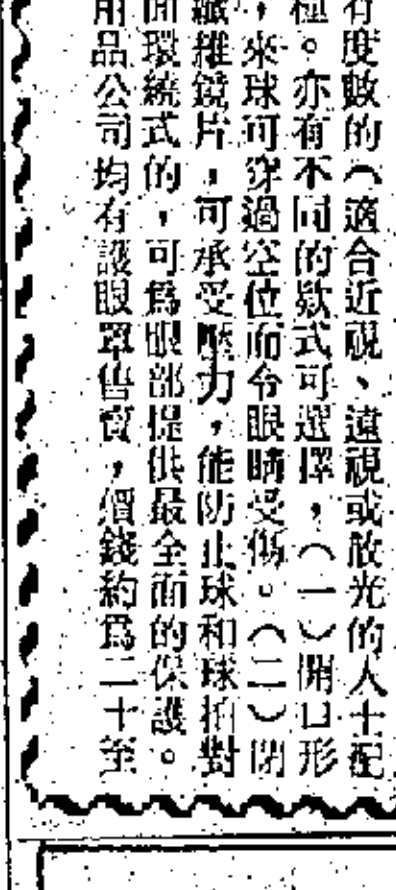 有度數的（適合近視、遠視或放光的人士配
種。亦有不同的欵式可選擇，（一）開口形
，來球可穿過空位而令眼睛受傷。（二）閉
纖維鏡片，可承受壓力，能防止球和球拍對
面環繞式的，可爲眼部提供最全面的保護。
用品公司均有護眼罩售賣，價錢約爲二十至